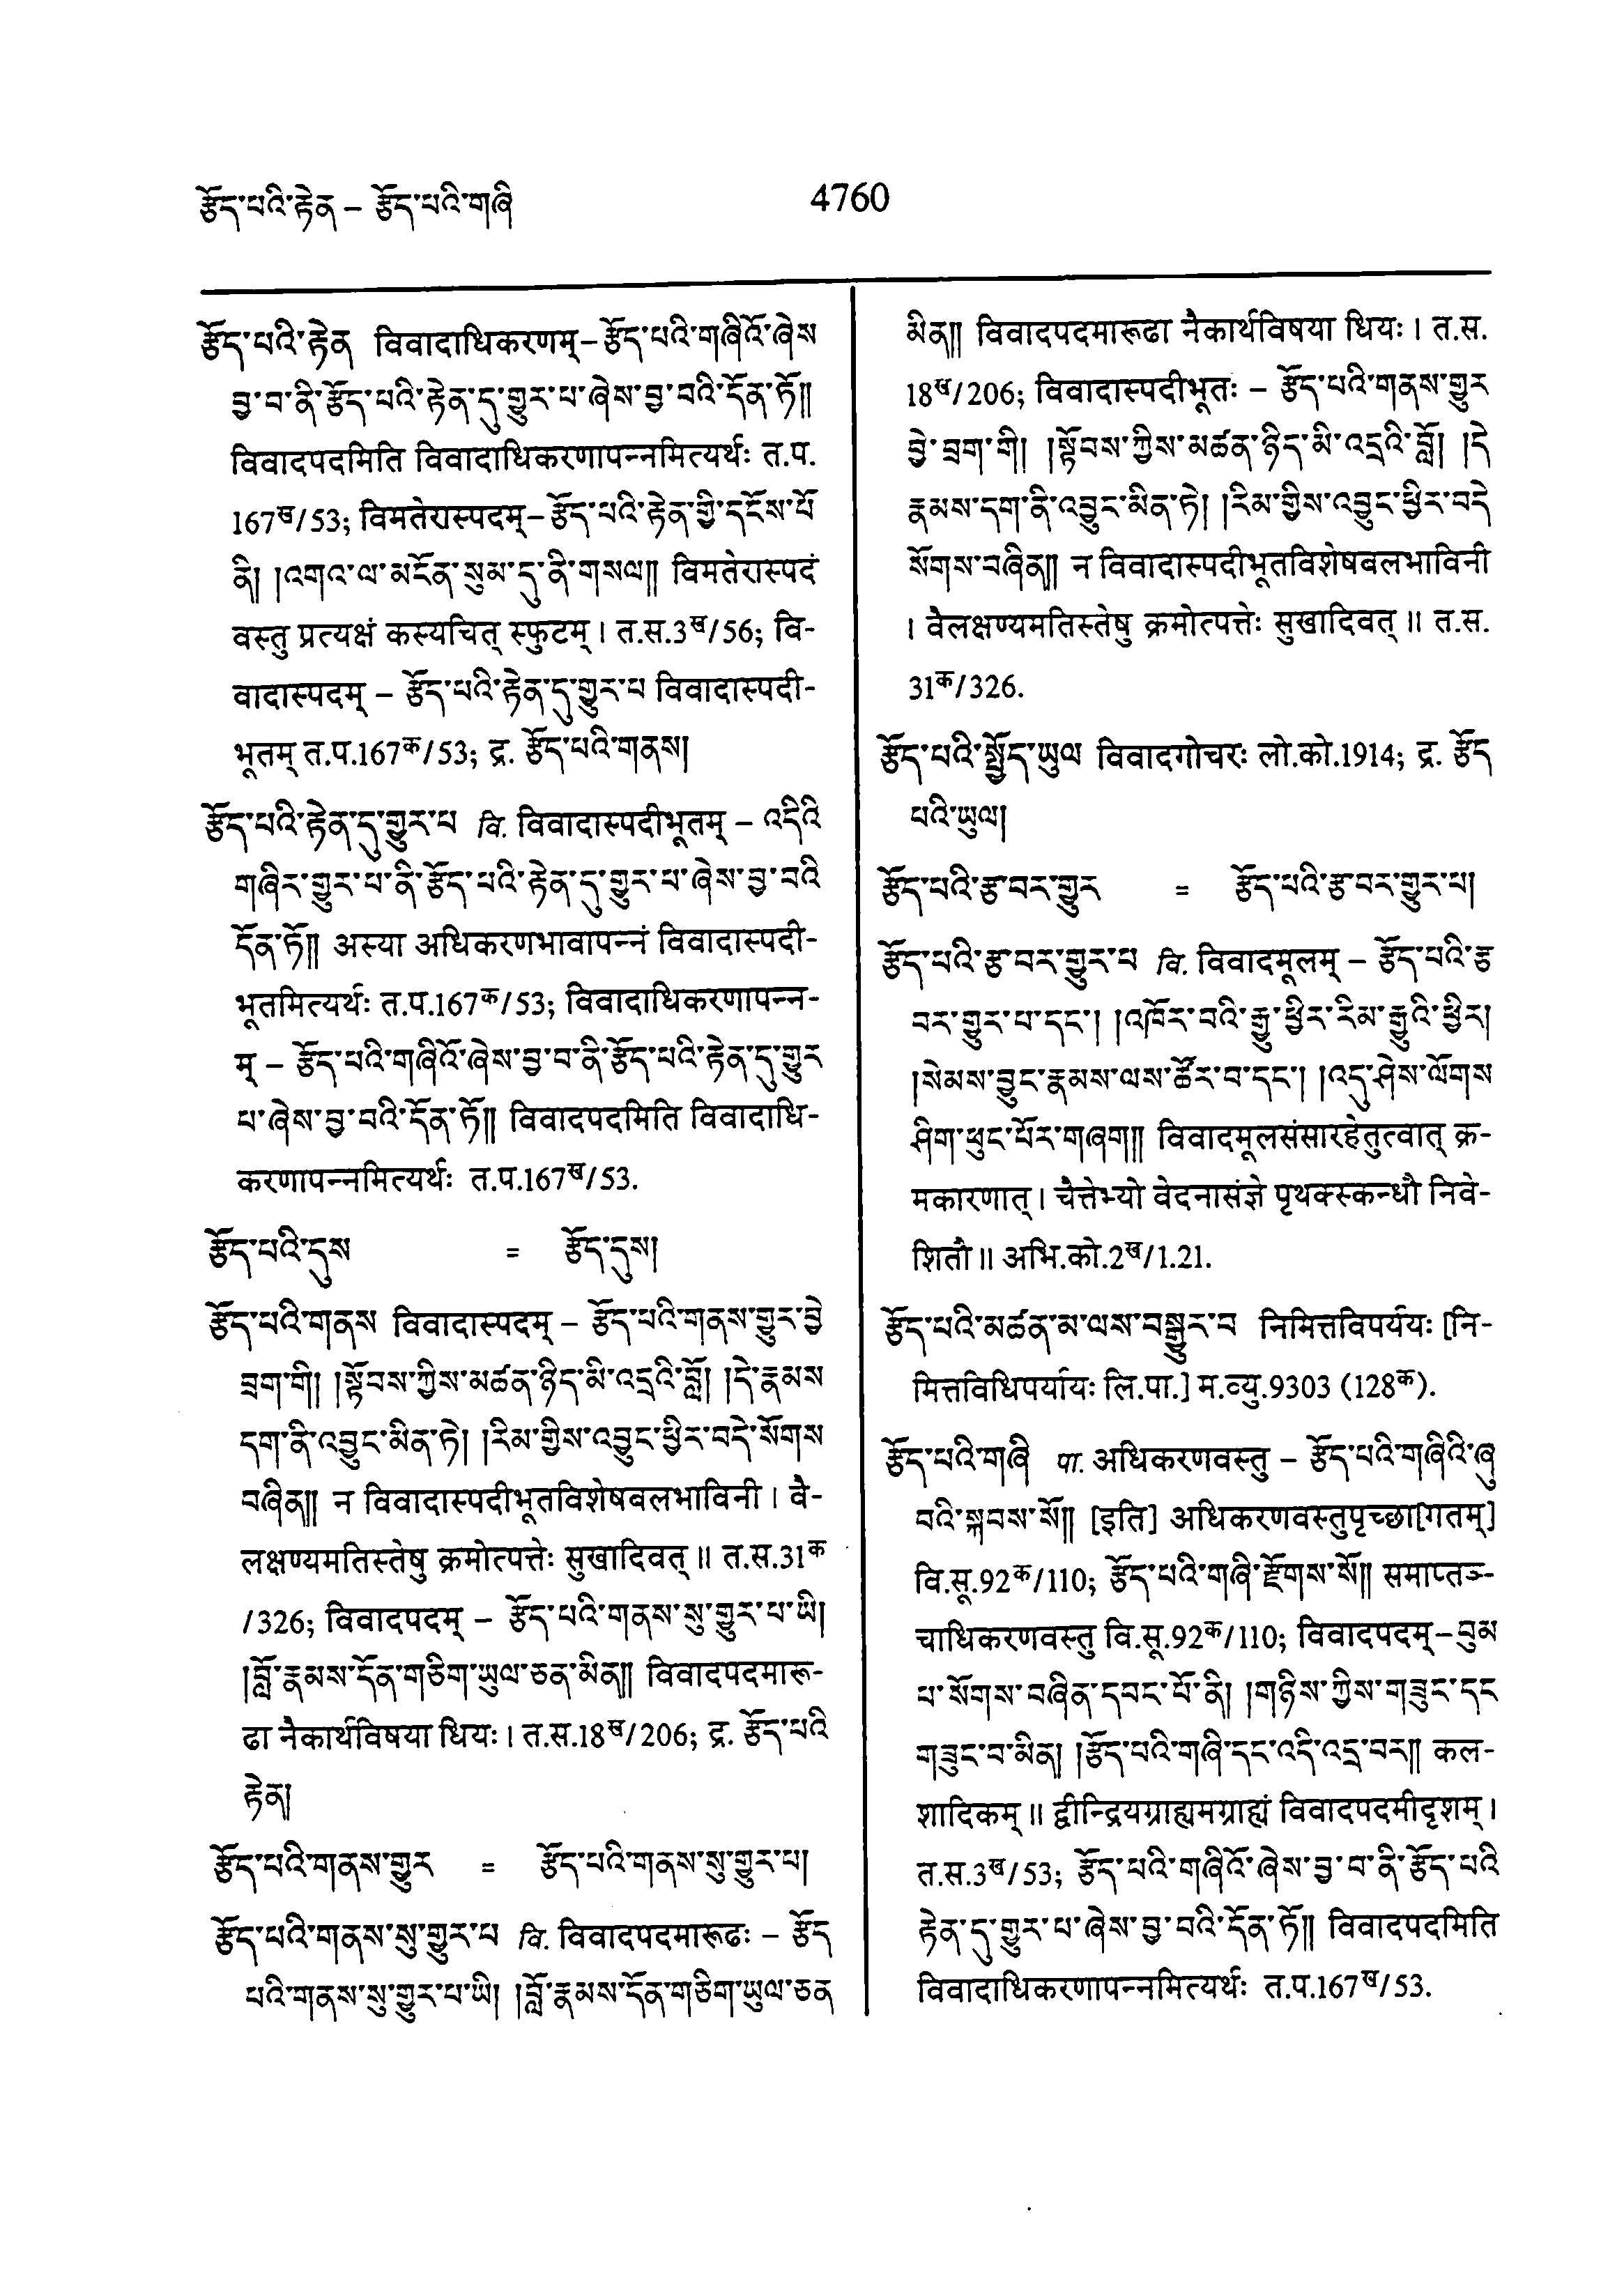 རྩོད་པའི་རྟེན – རྩོད་པའི་གཞི
4760
རྩོད་པའི་རྟེན विवादाधिकरणम् – རྩོད་པའི་གཞིའོ་ཞེས
བྱ་བ་ནི་རྩོད་པའི་རྟེན་དུ་གྱུར་པ་ཞེས་བྱ་བའི་དོན་ཏོ༎
विवादपदमिति विवादाधिकरणापन्नमित्यर्थः त.प.
167ख/53; विमतेरास्पदम् – རྩོད་པའི་རྟེན་གྱི་དངོས་པོ
ནི། །འགའ་ལ་མངོན་སུམ་དུ་ནི་གསལ༎ विमतेरास्पदं
वस्तु प्रत्यक्षं कस्यचित् स्फुटम् । त.स.3ख/56; वि-
वादास्पदम् – རྩོད་པའི་རྟེན་དུ་གྱུར་པ विवादास्पदी-
भूतम् त.प.167क/53; द्र. རྩོད་པའི་གནས།
རྩོད་པའི་རྟེན་དུ་གྱུར་པ वि. विवादास्पदीभूतम् – འདིའི
གཞིར་གྱུར་པ་ནི་རྩོད་པའི་རྟེན་དུ་གྱུར་པ་ཞེས་བྱ་བའི
དོན་ཏོ༎ अस्या अधिकरणभावापन्नं विवादास्पदी-
भूतमित्यर्थः त.प.167क/53; विवादाधिकरणापन्न-
म् – རྩོད་པའི་གཞིའོ་ཞེས་བྱ་བ་ནི་རྩོད་པའི་རྟེན་དུ་གྱུར
པ་ཞེས་བྱ་བའི་དོན་ཏོ༎ विवादपदमिति विवादाधि-
करणापन्नमित्यर्थः त.प.167ख/53.
རྩོད་པའི་དུས = རྩོད་དུས།
རྩོད་པའི་གནས विवादास्पदम् – རྩོད་པའི་གནས་གྱུར་བྱེ
བྲག་གི། །སྟོབས་ཀྱིས་མཚན་ཉིད་མི་འདྲའི་བློ། །དེ་རྣམས
དག་ནི་འབྱུང་མིན་ཏེ། །རིམ་གྱིས་འབྱུང་ཕྱིར་བདེ་སོགས
བཞིན༎ न विवादास्पदीभूतविशेषबलभाविनी । वै-
लक्षण्यमतिस्तेषु क्रमोत्पत्तेः सुखादिवत् ॥ त.स.31क
/326; विवादपदम् – རྩོད་པའི་གནས་སུ་གྱུར་པ་ཡི།
།བློ་རྣམས་དོན་གཅིག་ཡུལ་ཅན་མིན༎ विवादपदमारू-
ढा नैकार्थविषया धियः । त.स.18ख/206; द्र. རྩོད་པའི
རྟེན།
རྩོད་པའི་གནས་གྱུར = རྩོད་པའི་གནས་སུ་གྱུར་པ།
རྩོད་པའི་གནས་སུ་གྱུར་པ वि. विवादपदमारूढः – རྩོད
པའི་གནས་སུ་གྱུར་པ་ཡི། །བློ་རྣམས་དོན་གཅིག་ཡུལ་ཅན
མིན༎ विवादपदमारूढा नैकार्थविषया धियः । त.स.
18ख/206; विवादास्पदीभूतः – རྩོད་པའི་གནས་གྱུར
བྱེ་བྲག་གི། །སྟོབས་ཀྱིས་མཚན་ཉིད་མི་འདྲའི་བློ། །དེ
རྣམས་དག་ནི་འབྱུང་མིན་ཏེ། །རིམ་གྱིས་འབྱུང་ཕྱིར་བདེ
སོགས་བཞིན༎ न विवादास्पदीभूतविशेषबलभाविनी
। वैलक्षण्यमतिस्तेषु क्रमोत्पत्तेः सुखादिवत् ॥ त.स.
31क/326.
རྩོད་པའི་སྤྱོད་ཡུལ विवादगोचरः लो.को.1914; द्र. རྩོད
པའི་ཡུལ།
རྩོད་པའི་རྩ་བར་གྱུར = རྩོད་པའི་རྩ་བར་གྱུར་པ།
རྩོད་པའི་རྩ་བར་གྱུར་པ वि. विवादमूलम् – རྩོད་པའི་རྩ
བར་གྱུར་པ་དང་། །འཁོར་བའི་རྒྱུ་ཕྱིར་རིམ་རྒྱུའི་ཕྱིར།
།སེམས་བྱུང་རྣམས་ལས་ཚོར་བ་དང་། །འདུ་ཤེས་ལོགས
ཤིག་ཕུང་པོར་གཞག༎ विवादमूलसंसारहेतुत्वात् क्र-
मकारणात् । चैत्तेभ्यो वेदनासंज्ञे पृथक्स्कन्धौ निवे-
शितौ ॥ अभि.को.2ख/1.21.
རྩོད་པའི་མཚན་མ་ལས་བསྒྱུར་བ निमित्तविपर्ययः [नि-
मित्तविधिपर्यायः लि.पा.] म.व्यु.9303 (128क).
རྩོད་པའི་གཞི पा. अधिकरणवस्तु – རྩོད་པའི་གཞིའི་ཞུ
བའི་སྐབས་སོ༎ [इति] अधिकरणवस्तुपृच्छा[गतम्]
वि.सू.92क/110; རྩོད་པའི་གཞི་རྫོགས་སོ༎ समाप्तञ्-
चाधिकरणवस्तु वि.सू.92क/110; विवादपदम् – བུམ
པ་སོགས་བཞིན་དབང་པོ་ནི། །གཉིས་ཀྱིས་གཟུང་དང
གཟུང་བ་མིན། །རྩོད་པའི་གཞི་དང་འདི་འདྲ་བར༎ कल-
शादिकम् ॥ द्वीन्द्रियग्राह्यमग्राह्यं विवादपदमीदृशम् ।
त.स.3ख/53; རྩོད་པའི་གཞིའོ་ཞེས་བྱ་བ་ནི་རྩོད་པའི
རྟེན་དུ་གྱུར་པ་ཞེས་བྱ་བའི་དོན་ཏོ༎ विवादपदमिति
विवादाधिकरणापन्नमित्यर्थः त.प.167ख/53.